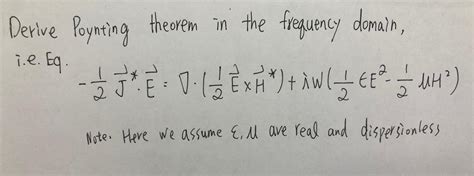 Derive Poynting theorem in the frequency domain,
i.e. Eq.
-1/2 J⃗* · E⃗ = ∇ · (1/2 E⃗ × H⃗*) + λW(1/2 ϵE² - 1/2 μH²)
Note. Here we assume ε, μ are real and dispersionless